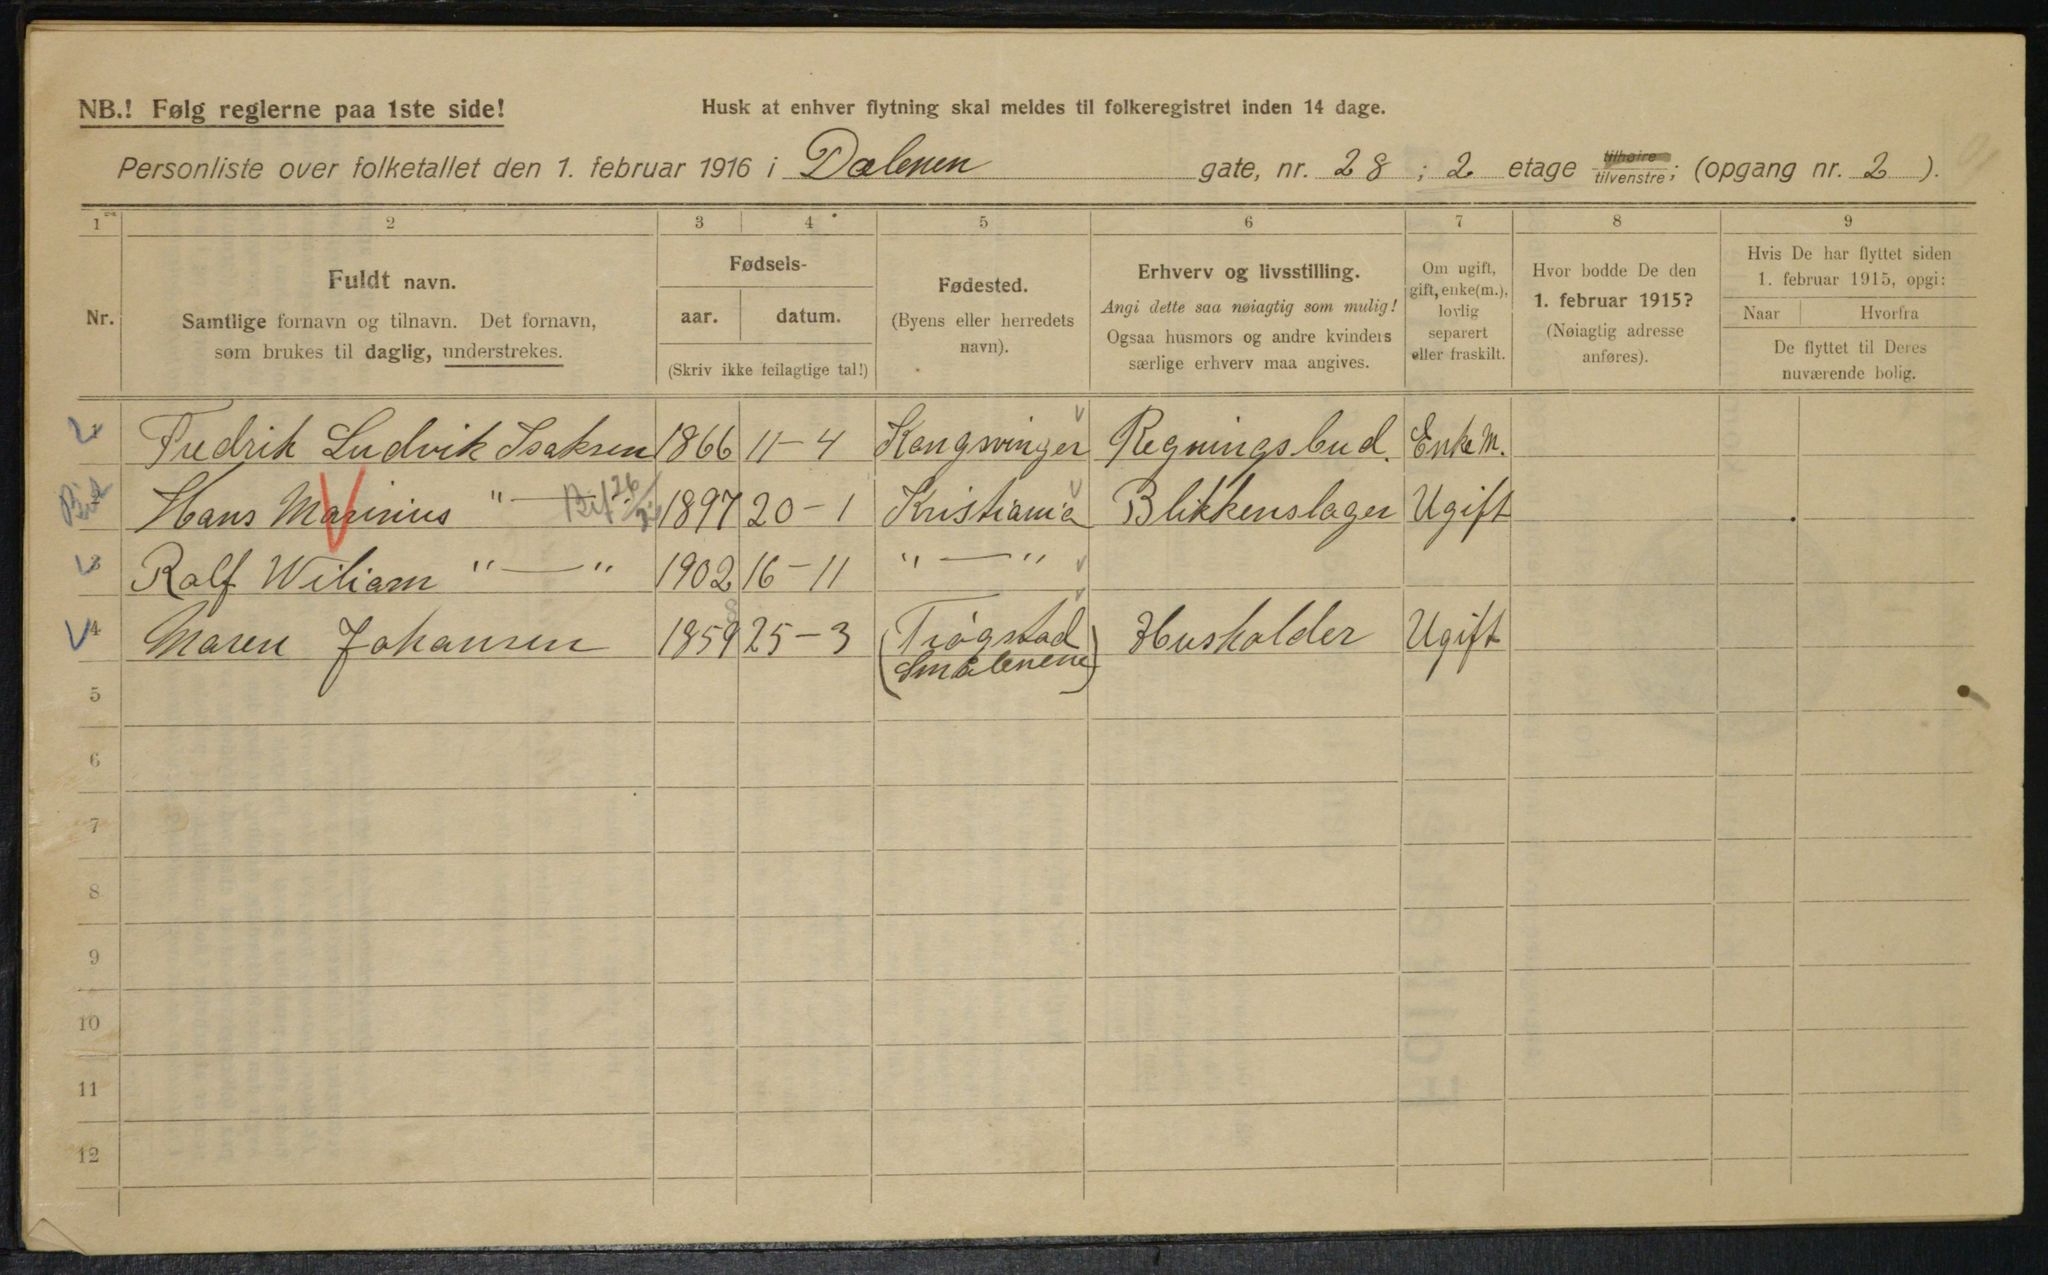 NB.! Følg reglerne paa 1ste side! Husk at enhver flytning skal meldes til folkeregistret inden 14 dage.
Personliste over folketallet den 1. februar 1916 i Dælenen gate, nr. 28 ; 2 etage tilhøire tilvenstre; (opgang nr. 2 ).
1 2 3 4 5 6 7 8 9
Nr.
Fuldt navn.
Samtlige fornavn og tilnavn. Det fornavn,
som brukes til daglig, understrekes.
Fødsels-
aar. datum.
(Skriv ikke feilagtige tal!)
Fødested.
(Byens eller herredets
navn).
Erhverv og livsstilling.
Angi dette saa nøiagtig som mulig!
Ogsaa husmors og andre kvinders
særlige erhverv maa angives.
Om ugift,
gift, enke(m.),
lovlig
separert
eller fraskilt.
Hvor bodde De den
1. februar 1915?
(Nøiagtig adresse
anføres).
Hvis De har flyttet siden
1. februar 1915, opgi:
Naar Hvorfra
De flyttet til Deres
nuværende bolig.
1 Fredrik Ludvik Isaksen 1866 11-4 Kongsvinger Regningsbud. Enke M.
2 Hans Marinius " — 1897 20-1 Kristiania Blikkenslager Ugift
3 Ralf Wiliam " — " 1902 16-11 " — "
4 Maren Johansen 1859 25-3 (Trøgstad Husholder Ugift
Smålenene)
5
6
7
8
9
10
11
12